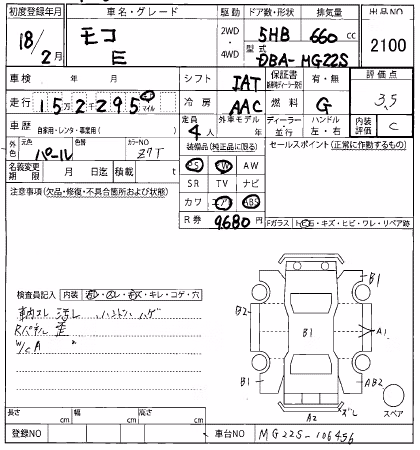 初度登録年月 車名・グレード 駆動 ドア数・形状 排気量 出品NO
18/2月 モコ E 2WD・4WD 5HB 660cc 2100
型式 DBA-MG22S
車検 年 月 シフト IAT 保証書 新車時(ディーラー発行) 有・無 評価点
走行 152295 km マイル 冷房 AAC 燃料 G 3.5
車歴 自家用・レンタ・事業用( ) 定員 4人 外車モデル 年 ディーラー・並行 ハンドル 左・右 内装評価 C
外色 元色 パール 色替 カラーNO Z7T 装備品(純正品に限る) セールスポイント(正常に動作するもの)
名義変更期限 月 日迄 積載 t PS PW AW
注意事項(欠品・修復・不具合箇所および状態) SR TV ナビ
カワ エアB ABS
R券 9680円 Fガラス トビ石・キズ・ヒビ・ワレ・リペア跡
検査員記入 内装 ヨゴレ・スレ・モス・キレ・コゲ・穴
Rパネル 歪
W/CA
B1
B2 B1 A1
B1 AB2
A2 スペア
長さ cm 幅 cm 高さ cm
登録NO 車台NO MG22S-106456